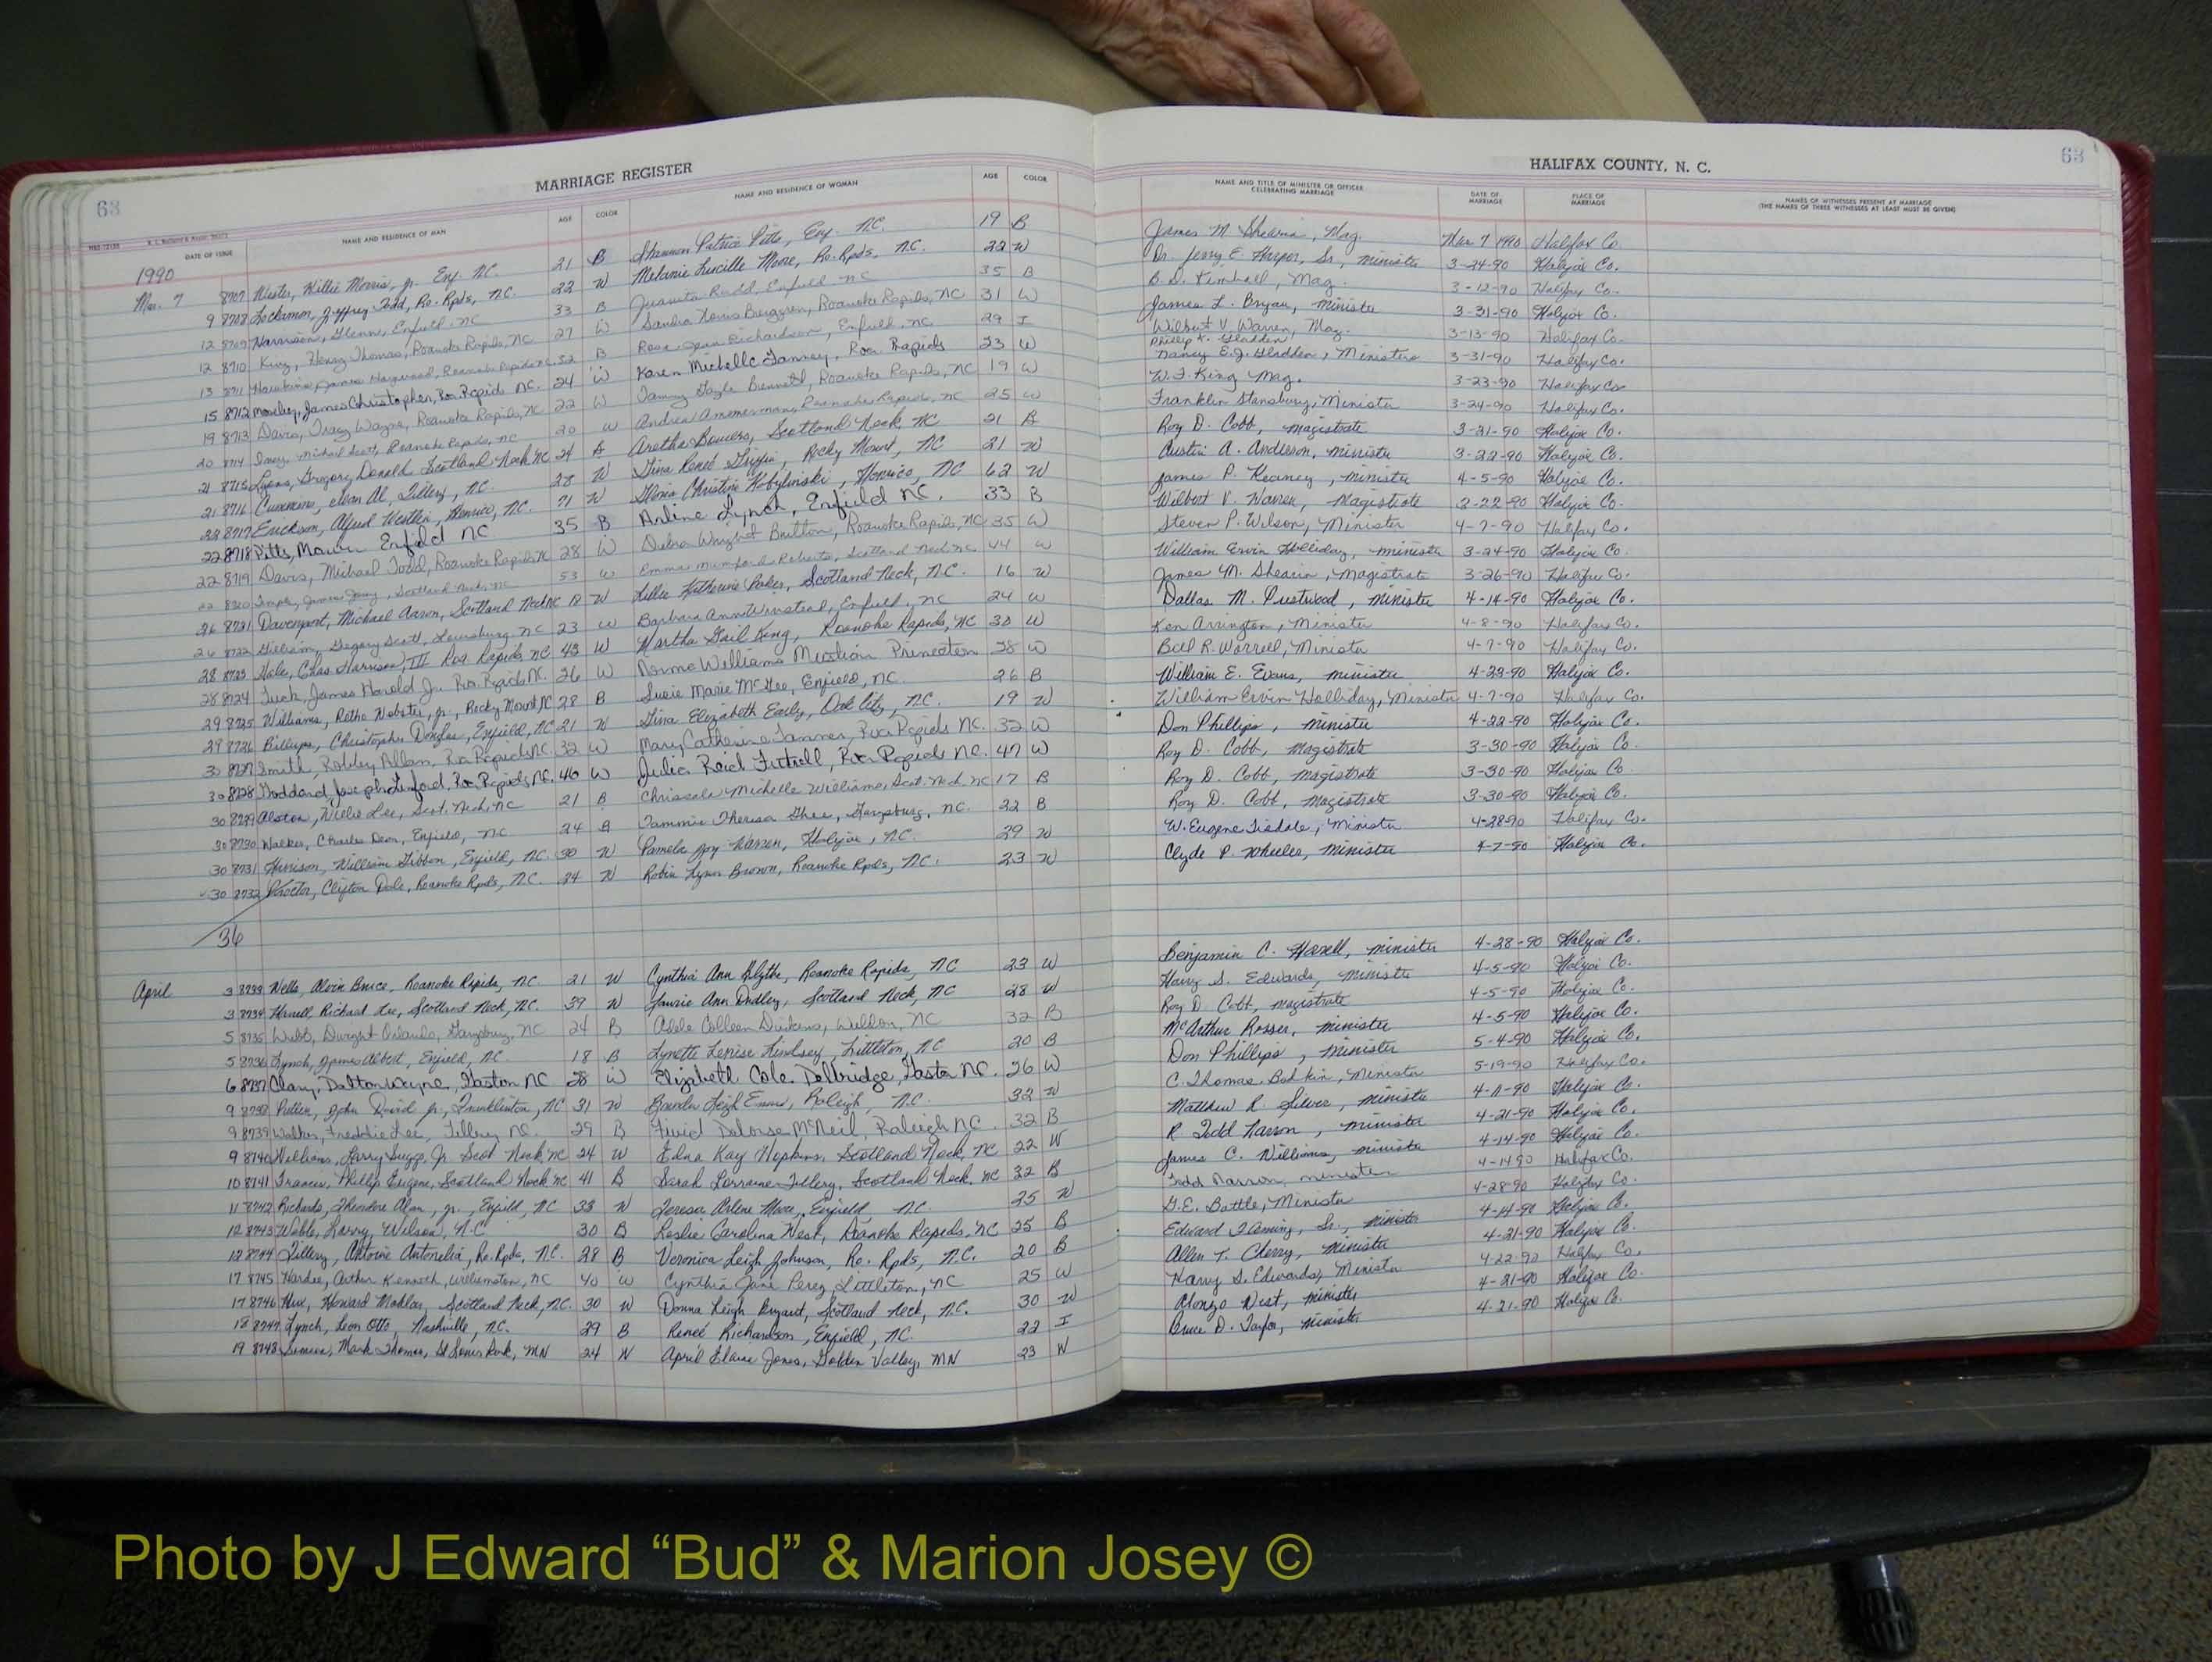 63
MARRIAGE REGISTER
HALIFAX COUNTY, N. C.
63
DATE OF ISSUE NAME AND RESIDENCE OF MAN AGE COLOR NAME AND RESIDENCE OF WOMAN AGE COLOR NAME AND TITLE OF MINISTER OR OFFICER CELEBRATING MARRIAGE DATE OF MARRIAGE PLACE OF MARRIAGE NAMES OF WITNESSES PRESENT AT MARRIAGE (THE NAMES OF THREE WITNESSES AT LEAST MUST BE GIVEN)
1990
Mar. 7 8707 Hester, Willie Morris, Jr. Enf. NC. 21 B Shannon Patrice Pitts, Enf. N.C. 19 B James M Shearin, Mag. Mar 7 1990 Halifax Co.
9 8708 Locklamon, Jeffrey Todd, Ro. Rpds, N.C. 22 W Melanie Lucille Moore, Ro. Rpds, N.C. 22 W Dr. Jerry E. Harper, Sr., minister 3-24-90 Halifax Co.
12 8709 Harrison, Glenn, Enfield, NC 33 B Juanita Rudd, Enfield NC 35 B B. S. Kimball, Mag. 3-12-90 Halifax Co.
12 8710 King, Henry Thomas, Roanoke Rapids, NC 27 W Sandra Berggren, Roanoke Rapids, NC 31 W James L. Bryan, minister 3-31-90 Halifax Co.
13 8711 Hawkins, James Haywood, Roanoke Rapids NC 32 B Rosa Jean Richardson, Enfield, NC 29 I Wilbert V. Warren, Mag. 3-13-90 Halifax Co.
15 8712 Moseley, James Christopher, Roa. Rapids NC. 24 W Karen Michelle Tanney, Roa Rapids 23 W Phillip K. Gladden Nancy E.J. Gladden, Ministers 3-31-90 Halifax Co.
19 8713 Davis, Tracy Wayne, Roanoke Rapids, NC 22 W Tammy Gayle Bennett, Roanoke Rapids, NC 19 W W. F. King Mag. 3-23-90 Halifax Co.
20 8714 Michael Scott, Roanoke Rapids, NC 20 W Andrea Roanoke Rapids, NC 25 W Franklin Stansbury, Minister 3-24-90 Halifax Co.
21 8715 Lyons, Gregory Donald Scotland Neck NC 24 B Aretha Bowers, Scotland Neck NC 21 B Roy D. Cobb, magistrate 3-21-90 Halifax Co.
21 8716 Cummins, Al, Tillery, N.C. 28 W Tina Reneé Griffin, Rocky Mount, NC 21 W Austin A. Anderson, minister 3-22-90 Halifax Co.
22 8717 Erickson, Alfred Henrico, N.C. 71 W Gloria Christine Kobylinski, Henrico, NC 62 W James P. Kearney, minister 4-5-90 Halifax Co.
22 8718 Pitts, Enfield NC 35 B Arline Lynch, Enfield NC. 33 B Wilbert V. Warren, Magistrate 2-22-90 Halifax Co.
22 8719 Davis, Michael Todd, Roanoke Rapids NC 28 W Debra Wright Britton, Roanoke Rapids, NC 35 W Steven P. Wilson, Minister 4-7-90 Halifax Co.
22 8720 Temple, James Scotland Neck, NC 53 W Emma Mumford Roberts, Scotland Neck NC 44 W William Ervin Holliday, minister 3-24-90 Halifax Co.
26 8721 Davenport, Michael Aaron, Scotland Neck NC 18 W Lillie Katherine Parker, Scotland Neck, N.C. 16 W James M. Shearin, Magistrate 3-26-90 Halifax Co.
26 8722 Gilliam, Gregory Scott, Louisburg NC 23 W Barbara Ann Winstead, Enfield, NC 24 W Dallas M. Prestwood, minister 4-14-90 Halifax Co.
28 8723 Hale, Chas. Harrison, III Roa. Rapids, NC 43 W Martha Gail King, Roanoke Rapids, NC 30 W Ken Arrington, Minister 4-8-90 Halifax Co.
28 8724 Tuck, James Harold Jr. Roa. Rapids NC. 26 W Norma Williams Mustian Princeton 28 W Bill R. Worrell, Minister 4-7-90 Halifax Co.
29 8725 Williams, Retho Webster, Jr., Rocky Mount, NC 28 B Susie Marie McGee, Enfield, NC. 26 B William E. Evans, minister 4-22-90 Halifax Co.
29 8726 Billups, Christopher Douglas, Enfield, NC 21 W Gina Elizabeth Early, Oak City, N.C. 19 W William Ervin Holliday, Minister 4-7-90 Halifax Co.
30 8727 Smith, Robley Allan, Roa Rapids NC. 32 W Mary Catherine Tanner, Roa Rapids NC. 32 W Don Phillips, minister 4-22-90 Halifax Co.
30 8728 Goddard, Joseph Linford, Roa Rapids, NC. 46 W Julia Reid Futrell, Roa Rapids NC. 47 W Roy D. Cobb, magistrate 3-30-90 Halifax Co.
30 8729 Alston, Willie Lee, Scot. Neck, NC 21 B Michelle Williams, Scot. Neck NC 17 B Roy D. Cobb, magistrate 3-30-90 Halifax Co
30 8730 Walker, Charles Dean, Enfield, NC 24 B Tammie Theresa Ghee, Garysburg, NC. 22 B Roy D. Cobb, magistrate 3-30-90 Halifax Co.
30 8731 Harrison, William Gibbon, Enfield, NC. 30 W Pamela Joy Warren, Halifax, N.C. 29 W W. Eugene Tisdale, Minister 4-28-90 Halifax Co.
30 8732 Proctor, Clifton Dale, Roanoke Rpds, N.C. 24 W Robin Lynn Brown, Roanoke Rpds, N.C. 23 W Clyde P. Wheeler, minister 4-7-90 Halifax Co.
36
April 3 8733 Wells, Alvin Bruce, Roanoke Rapids, N.C. 21 W Cynthia Ann Blythe, Roanoke Rapids, NC 23 W Benjamin C. Harell, minister 4-28-90 Halifax Co.
3 8734 Harrell, Richard Lee, Scotland Neck, NC. 39 W Laurie Ann Dudley, Scotland Neck, NC 28 W Harry S. Edwards, minister 4-5-90 Halifax Co.
5 8735 Webb, Dwight Orlando, Garysburg, NC 24 B Adele Colleen Dickens, Weldon, NC 32 B Roy D. Cobb, magistrate 4-5-90 Halifax Co.
5 8736 Lynch, James Albert, Enfield, NC. 18 B Lynette Lenise Kindsey, Littleton, NC 20 B McArthur Rosser, minister 4-5-90 Halifax Co.
6 8737 Clary, Dalton Wayne, Gaston NC 28 W Elizabeth Cole Delbridge, Gaston NC. 26 W Don Phillips, minister 5-4-90 Halifax Co.
9 8738 Pullen, John David Jr., Franklinton, NC 31 W Brenda Leigh Evans, Raleigh, N.C. 32 W C. Thomas Bodkin, Minister 5-19-90 Halifax Co.
9 8739 Walker, Freddie Lee, Tillery NC. 29 B Delorse McNeil, Raleigh NC. 32 B Matthew R. Silver, minister Halifax Co.
9 8740 Williams, Larry Suggs, Jr. Scot Neck, NC 24 W Edna Kay Hopkins, Scotland Neck, NC 22 W R. Todd Narron, minister 4-21-90 Halifax Co.
10 8741 Francis, Phillip Eugene, Scotland Neck NC 41 B Sarah Lorraine Tillery, Scotland Neck, NC 32 B James C. Williams, minister 4-14-90 Halifax Co.
11 8742 Richards, Theodore Alan, Jr., Enfield, NC 33 W Teresa Arlene Moore, Enfield, NC. 25 W Todd Narron, minister 4-14-90 Halifax Co.
12 8743 Webb, Larry, Wilson, N.C 30 B Leslie Carolina West, Roanoke Rapids, NC 25 B G.E. Battle, Minister 4-28-90 Halifax Co.
12 8744 Tillery, Antoine Ro. Rpds, N.C. 28 B Veronica Leigh Johnson, Ro. Rpds, N.C. 20 B Edward Fleming, Sr., minister 4-14-90 Halifax Co.
17 8745 Hardee, Arthur Kenneth, Williamston, NC 40 W Cynthia Jane Perez Littleton, NC 25 W Allen T. Cherry, minister 4-21-90 Halifax Co.
17 8746 Hux, Howard Scotland Neck, N.C. 30 W Donna Leigh Bryant, Scotland Neck, N.C. 30 W Harry S. Edwards, Minister 4-22-90 Halifax Co.
18 8747 Lynch, Leon Otto, Nashville, N.C. 29 B Reneé Richardson, Enfield, NC. 22 I Alonzo West, minister 4-21-90 Halifax Co.
19 8748 Mark Thomas, St Louis Park, MN 24 W April Elaine Jones, Golden Valley, MN 23 W Bruce D. Taylor, minister 4-21-90 Halifax Co.
Photo by J Edward “Bud” & Marion Josey ©